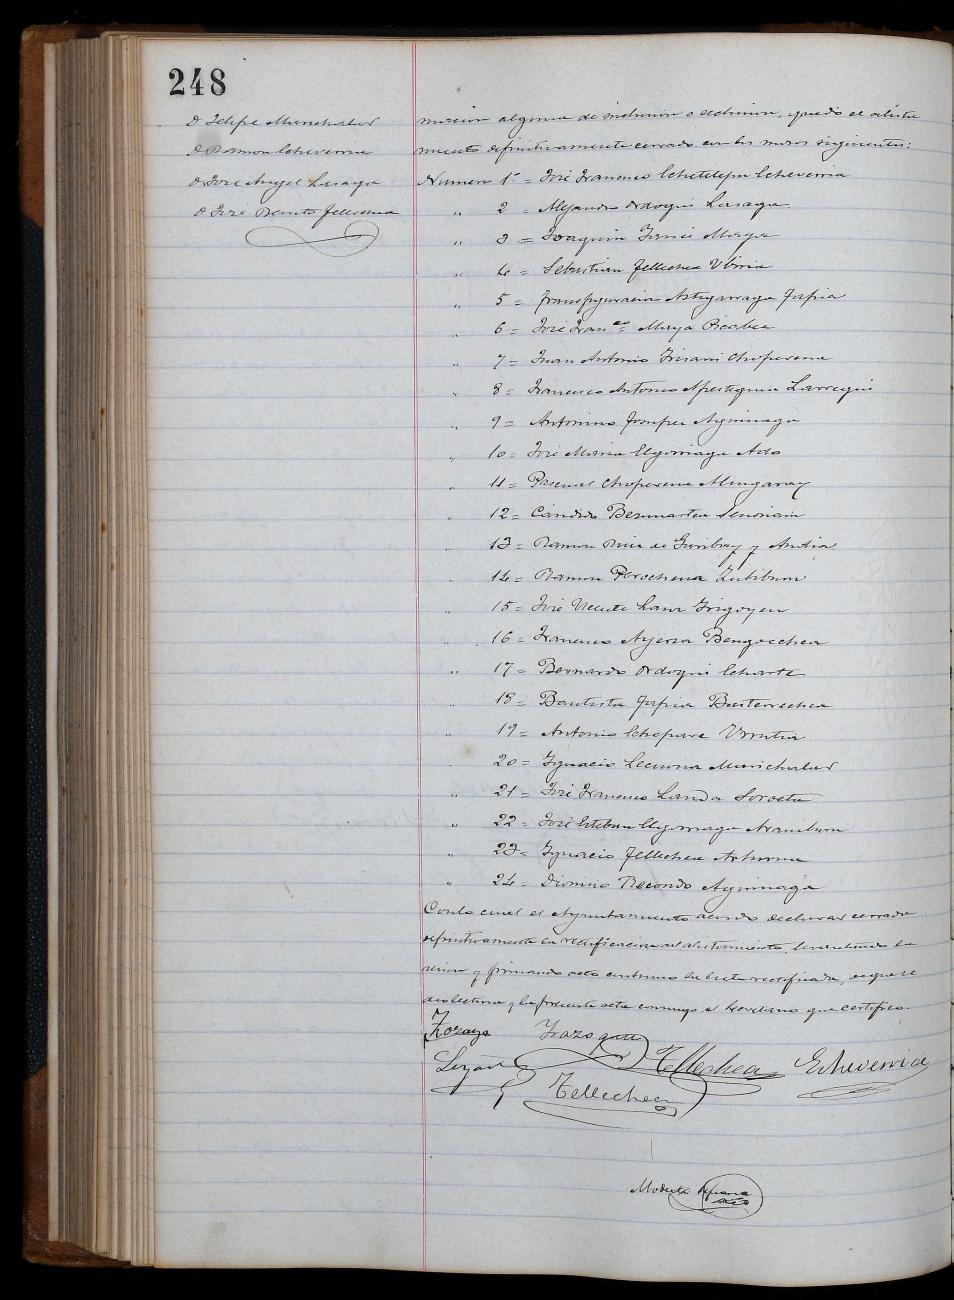 248
D Felipe Marichalar
D Ramon Echeverria
D José Angel Lasaga
D José Benito Tellechea
alguna de inclusion o exclusion, quedó el alista
miento definitivamente cerrado con los mozos siguientes:
Numero 1º = José Francisco Echeverria
" 2 = Alejandro Ordoqui Lasaga
" 3 = Joaquin Maya
" 4 = Sebastian Tellechea
" 5 = Transfiguracion Astigarraga Tapia
" 6 = José Franco Maya Picabea
" 7 = Juan Antonio Irisarri Choperena
" 8 = Francisco Antonio Apesteguia Larregui
" 9 = Antonino Aguinaga
" 10 = José Maria Elgorriaga
" 11 = Pascual Choperena Mugaray
" 12 = Candido Berunartea
" 13 = Ramon Ruiz de Garibay y
" 14 = Ramon Perochena Zubiburu
" 15 = José Vicente Irigoyen
" 16 = Francisco Ayerza Bengoechea
" 17 = Bernardo Ordoqui Echarte
" 18 = Bautista Tapia Basterrechea
" 19 = Antonio Echepare Urrutia
20 = Ygnacio Lecuona Marichalar
" 21 = José Francisco Landa Soroeta
" 22 = José Esteban Elgorriaga Aramburu
" 23 = Ygnacio Tellechea
" 24 = Dionisio Recondo Aguinaga
Con lo cual el Ayuntamiento acordó declarar cerrada
definitivamente la rectificacion del alistamiento, levantando la
sesion y firmando acto continuo la lista rectificada,
lectura y la presente acta conmigo el Secretario que certifico.
Yrazoqui
Tellechea Echeverria
Tellechea
Modesto